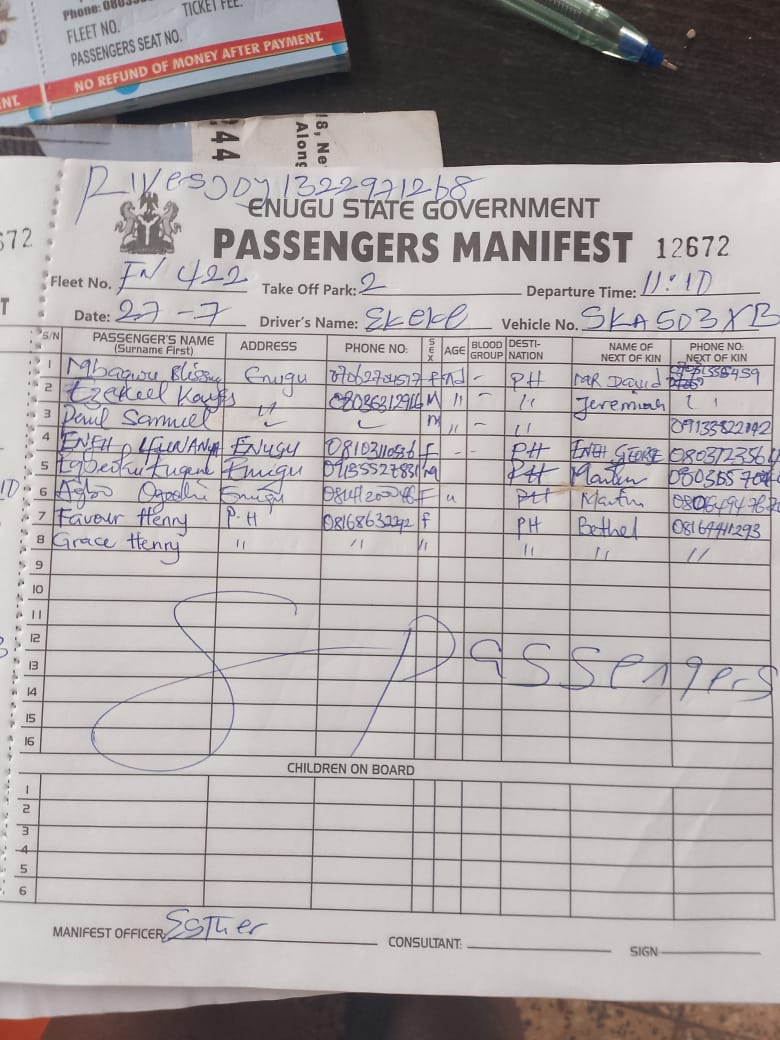 Phone: 0803
TICKET FEE.
FLEET NO.
PASSENGERS SEAT NO.
NO REFUND OF MONEY AFTER PAYMENT.
ENT.
44
18, Ne
Along
RiversJoy 1322971268
ENUGU STATE GOVERNMENT
672
PASSENGERS MANIFEST 12672
Fleet No. EN 422 Take Off Park: 2 Departure Time: 11:10
Date: 27-7 Driver's Name: EKEKE Vehicle No. SKA503XB
S/N PASSENGER'S NAME (Surname First) ADDRESS PHONE NO: SEX AGE BLOOD GROUP DESTI-NATION NAME OF NEXT OF KIN PHONE NO: NEXT OF KIN
1 Blessing Enugu 07062704517 F Ad - PH MR David
2 Ezekiel 08036312916 M " - " Jeremiah
3 Paul Samuel " M " - " 09133822142
4 ENEH ENUGU F - - PH ENEH GEORGE
5 Enugu PH Martin
6 Agbo Enugu F PH Martin
7 Favour Henry P.H 08168632292 f PH Bethel 08164411293
8 Grace Henry " " " " " "
9
10
11
12
13
14
15
16
8 Passengers
CHILDREN ON BOARD
1
2
3
4
5
6
MANIFEST OFFICER: Esther CONSULTANT: SIGN